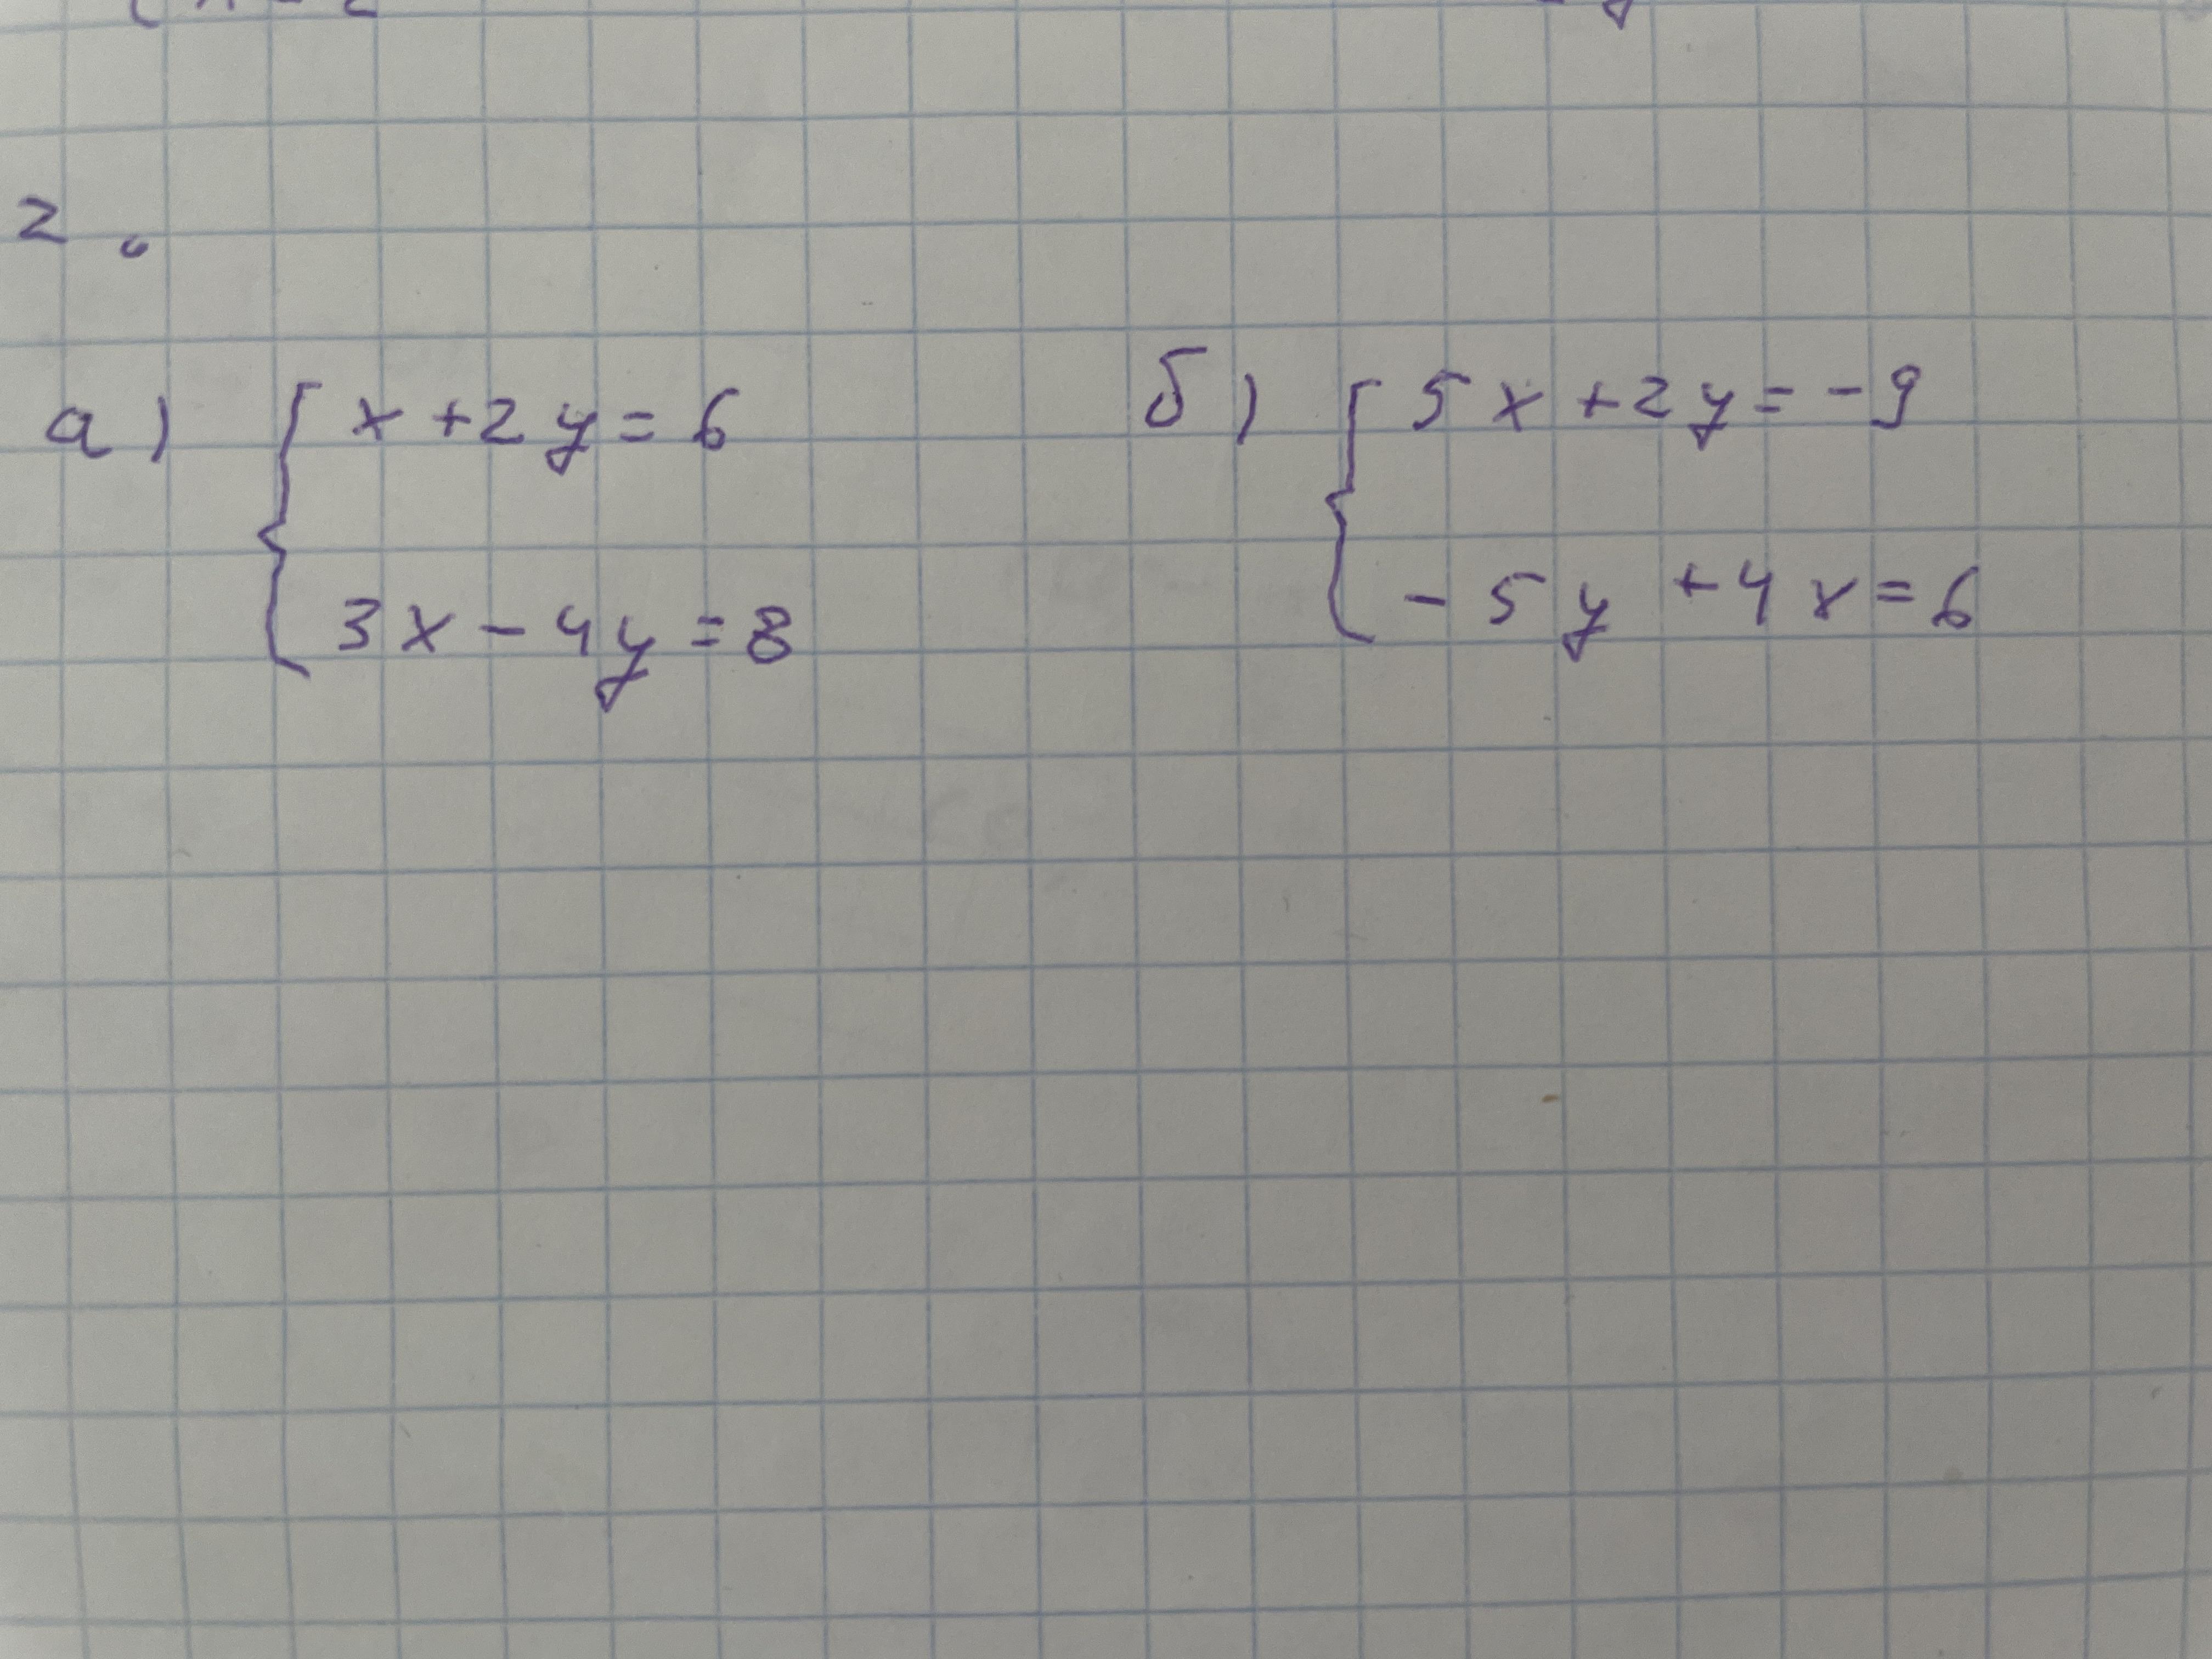 2.
а) { x + 2y = 6
3x - 4y = 8
б) { 5x + 2y = -9
- 5y + 4x = 6